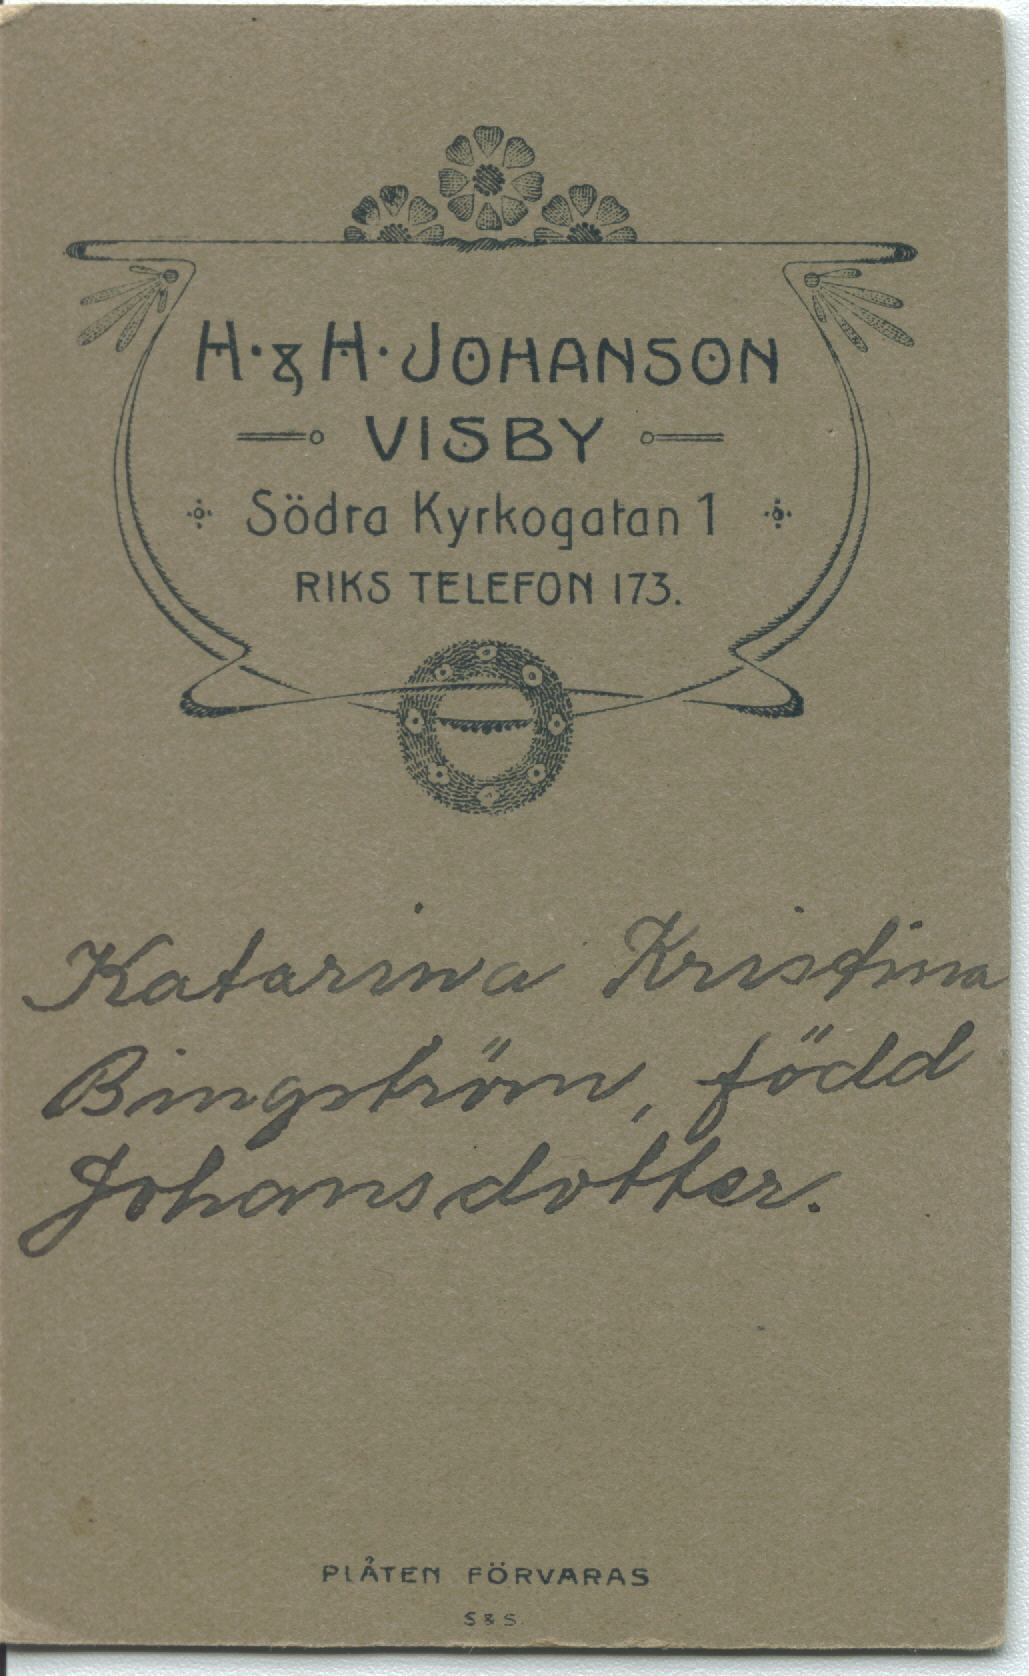 H. & H. JOHANSON
VISBY
Södra Kyrkogatan 1
RIKS TELEFON 173.
Katarina Kristina
Bingström, född
Johansdotter.
PLÅTEN FÖRVARAS
S & S.